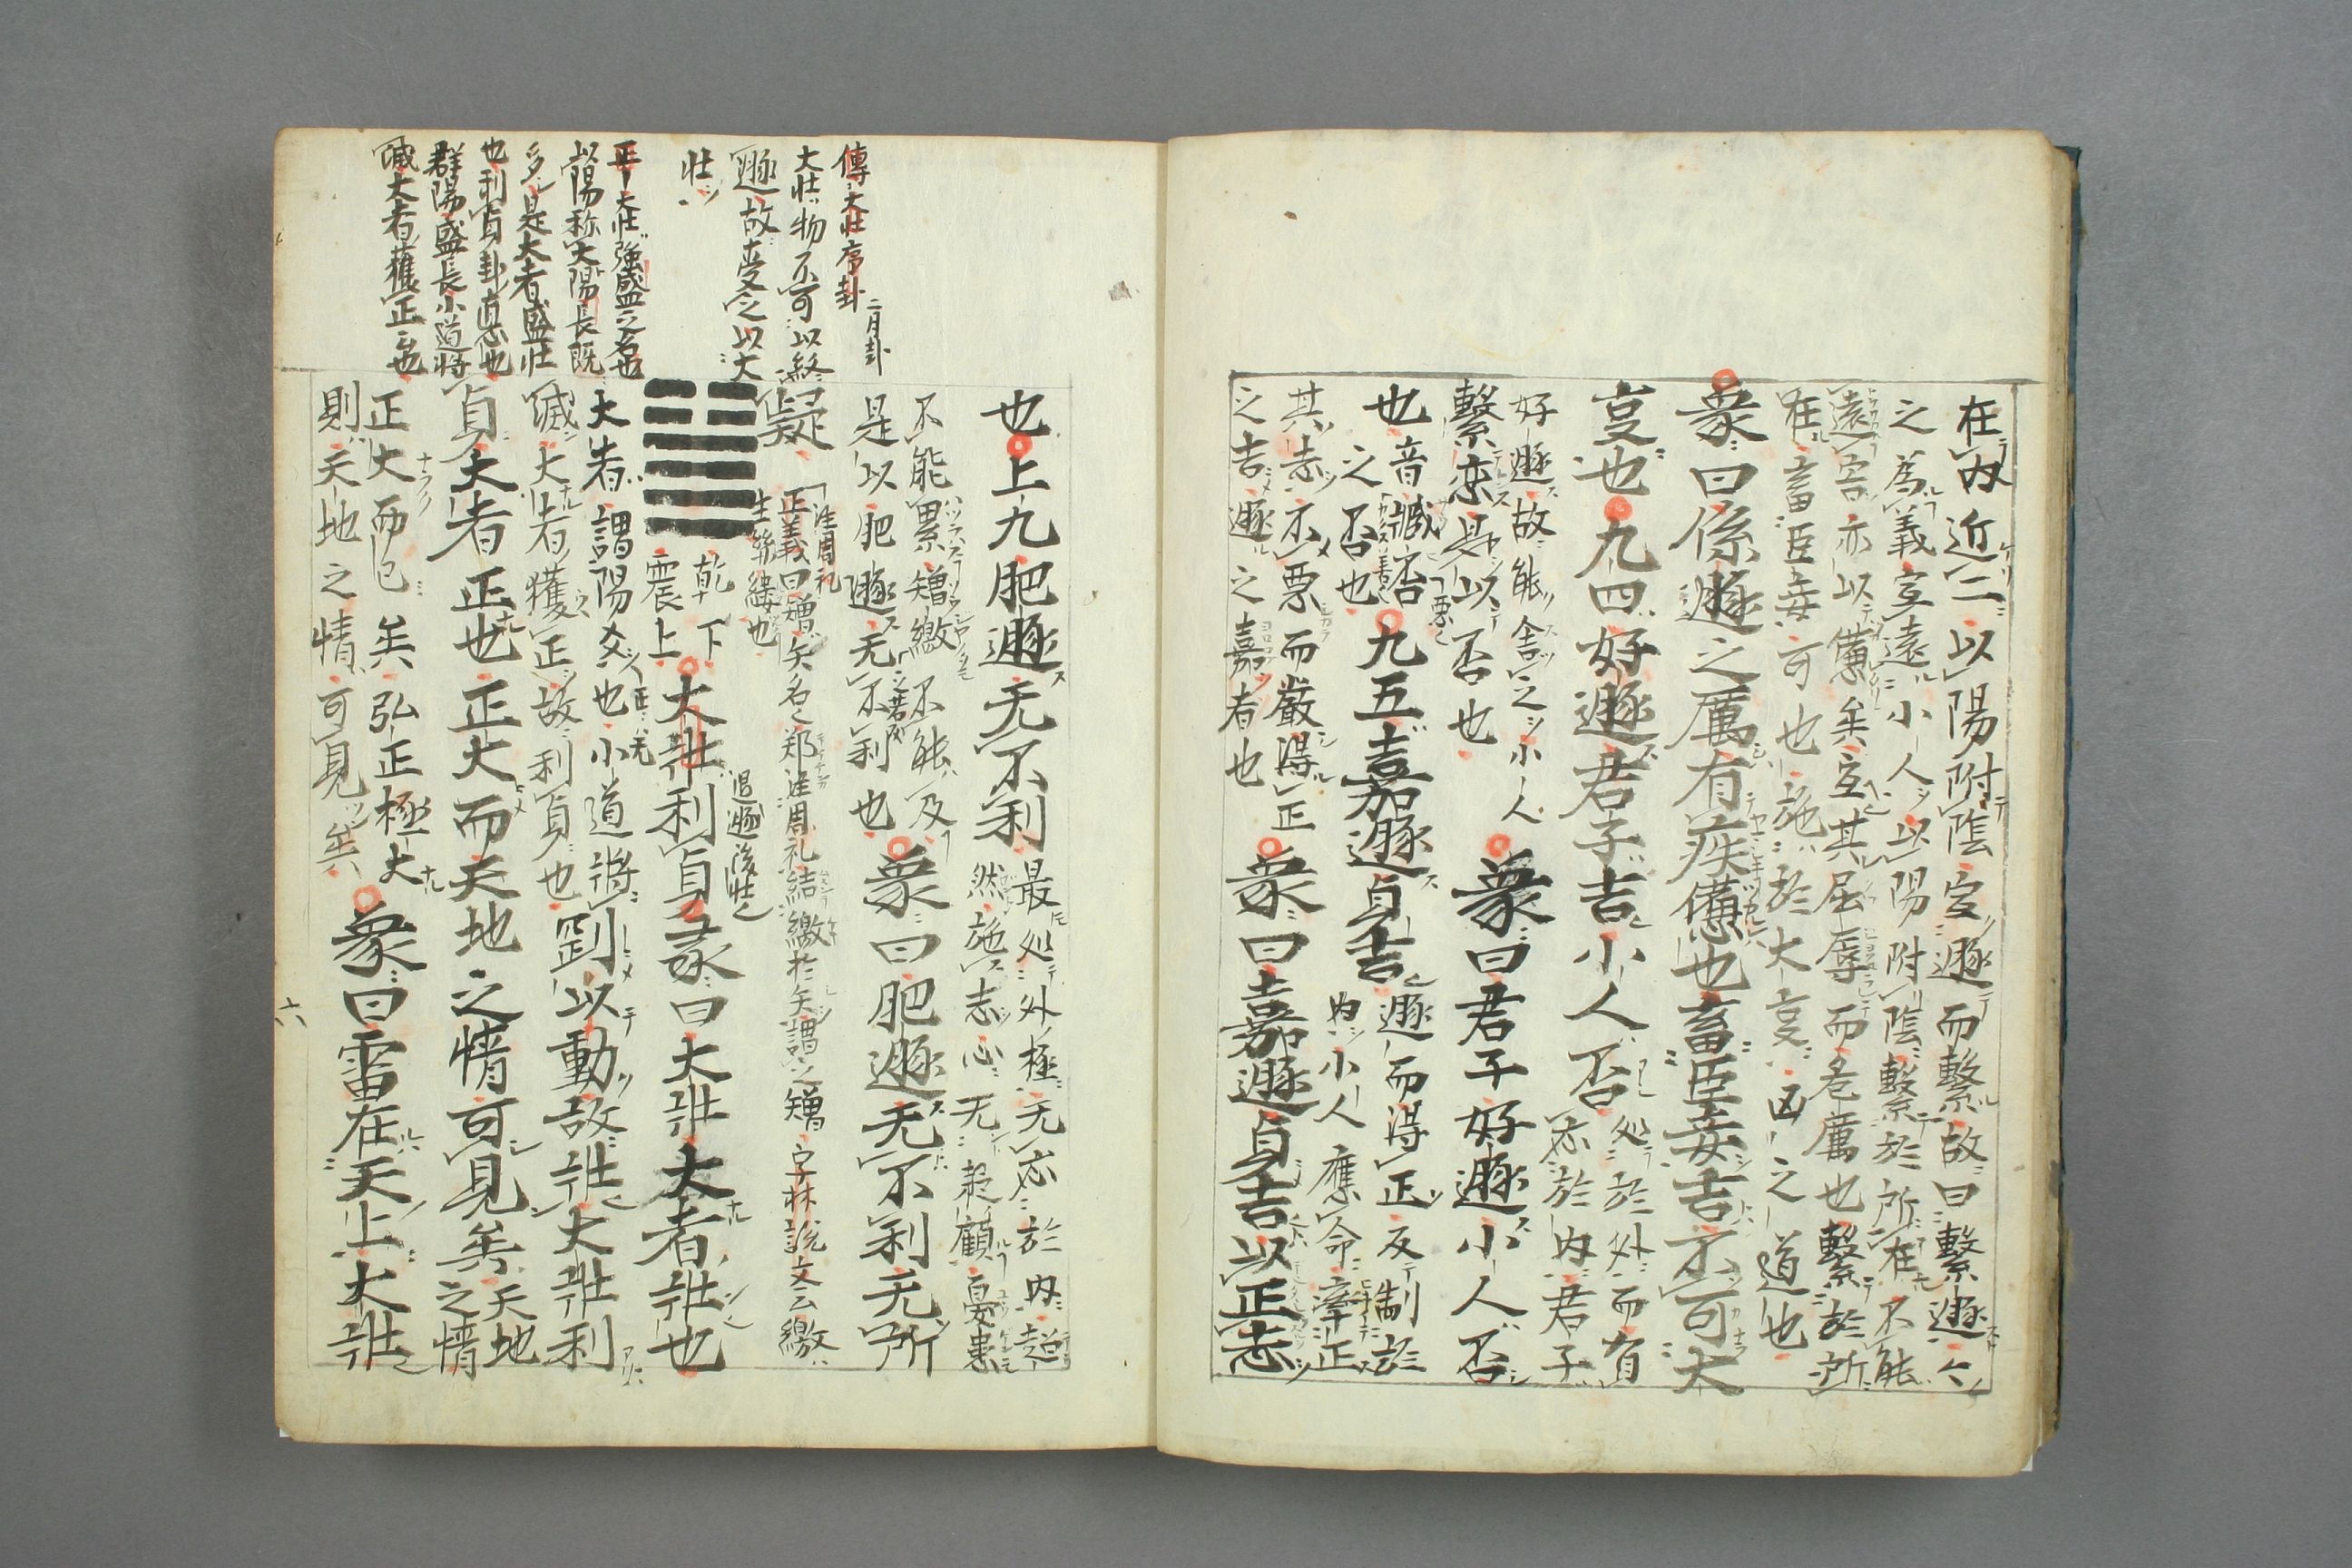 在内近二以陽附陰宜遯而繫故曰繫遯六
之為義宜遠小人以陽附陰繫於所在不能
遠害亦以憊矣宜其屈辱而危厲也繫於所
在畜臣妾可也施於大事凶之道也
象曰係遯之厲有疾憊也畜臣妾吉不可大
事也九四好遯君子吉小人否
処於外而有
应於内君子
好遯故能舎之小人
繫恋是以否也
象曰君子好遯小人否
也
音臧否
之否也
九五嘉遯貞吉
遯而得正反制於
内小人應命率正
其志不悪而厳得正
之吉遯之嘉者也
象曰嘉遯貞吉以正志
也上九肥遯无不利
最処外極无应於内超
然施志心无疑顧憂患
不能累矰繳不能及
是以肥遯无不利也
象曰肥遯无不利无所
疑
注周礼
正義曰矰矢名也郑注周礼結繳於矢謂之矰字林説文云繳
生絲縷也
乾下
震上
大壮利貞彖曰大壮大者壮也
退遯後壮也
大者謂陽爻也小道将
滅大者獲正故利貞也
剛以動故壮大壮利
貞大者正也正大而天地之情可見矣
天地
之情
正大而已矣弘正極大
則天地之情可見矣
象曰雷在天上大壮
傳大壮序卦
二月卦
大壮物不可以終
遯故受之以大
壮
正大壮強盛之名也
以陽称大陽長既
多是大者盛壮
也利貞卦直也
群陽盛長小道将
滅大者獲正也
六